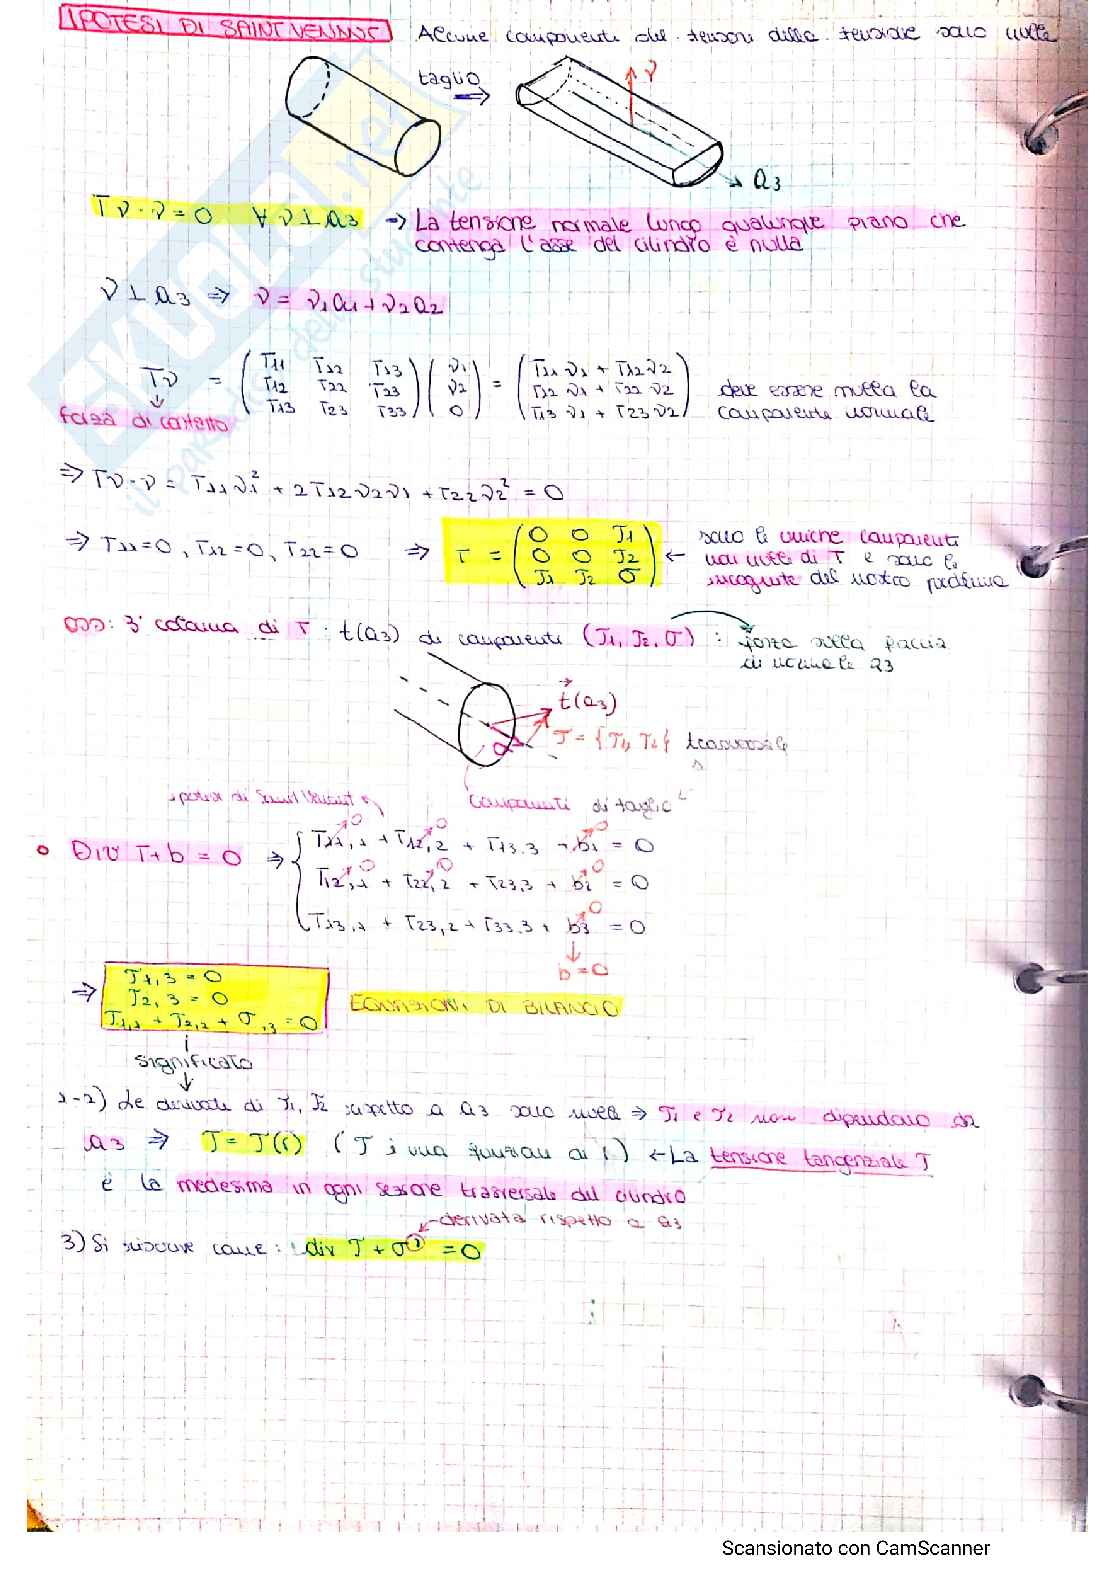 IPOTESI DI SAINT VENANT Alcune componenti del tensore della tensione sono nulle
taglio
ν
a3
Tν · ν = 0 ∀ ν ⊥ a3 → La tensione normale lungo qualunque piano che
contenga l'asse del cilindro è nulla
ν ⊥ a3 ⇒ ν = ν1a1 + ν2a2
Tν = (T11 T12 T13) (ν1) = (T11 ν1 + T12 ν2)
(T12 T22 T23) (ν2) (T12 ν1 + T22 ν2) deve essere nulla la
(T13 T23 T33) (0) (T13 ν1 + T23 ν2) componente normale
forza di contatto
⇒ Tν · ν = T11 ν1² + 2T12 ν2 ν1 + T22 ν2² = 0
⇒ T11 = 0, T12 = 0, T22 = 0 ⇒ T = (0 0 τ1) ← sono le uniche componenti
(0 0 τ2) non nulle di T e sono le
(τ1 τ2 σ) incognite del nostro problema
oss: 3° colonna di T : t(a3) di componenti (τ1, τ2, σ) : forza sulla faccia
di normale a3
t(a3)
σ
τ = {τ1, τ2} trasversale
ipotesi di Saint Venant
componenti di taglio
• Div T + b = 0 ⇒ { T11,1 + T12,2 + T13,3 + b1 = 0
T12,1 + T22,2 + T23,3 + b2 = 0
T13,1 + T23,2 + T33,3 + b3 = 0
b = 0
⇒ τ1,3 = 0
τ2,3 = 0 EQUAZIONI DI BILANCIO
τ1,1 + τ2,2 + σ,3 = 0
significato
1-2) Le derivate di τ1, τ2 rispetto a a3 sono nulle ⇒ τ1 e τ2 non dipendono da
a3 ⇒ τ = τ(r) (τ è una funzione di r) ← La tensione tangenziale τ
è la medesima in ogni sezione trasversale del cilindro
derivata rispetto a a3
3) Si riscrive come : div τ + σ' = 0
SKUOLA.net
il paradiso dello studente
Scansionato con CamScanner